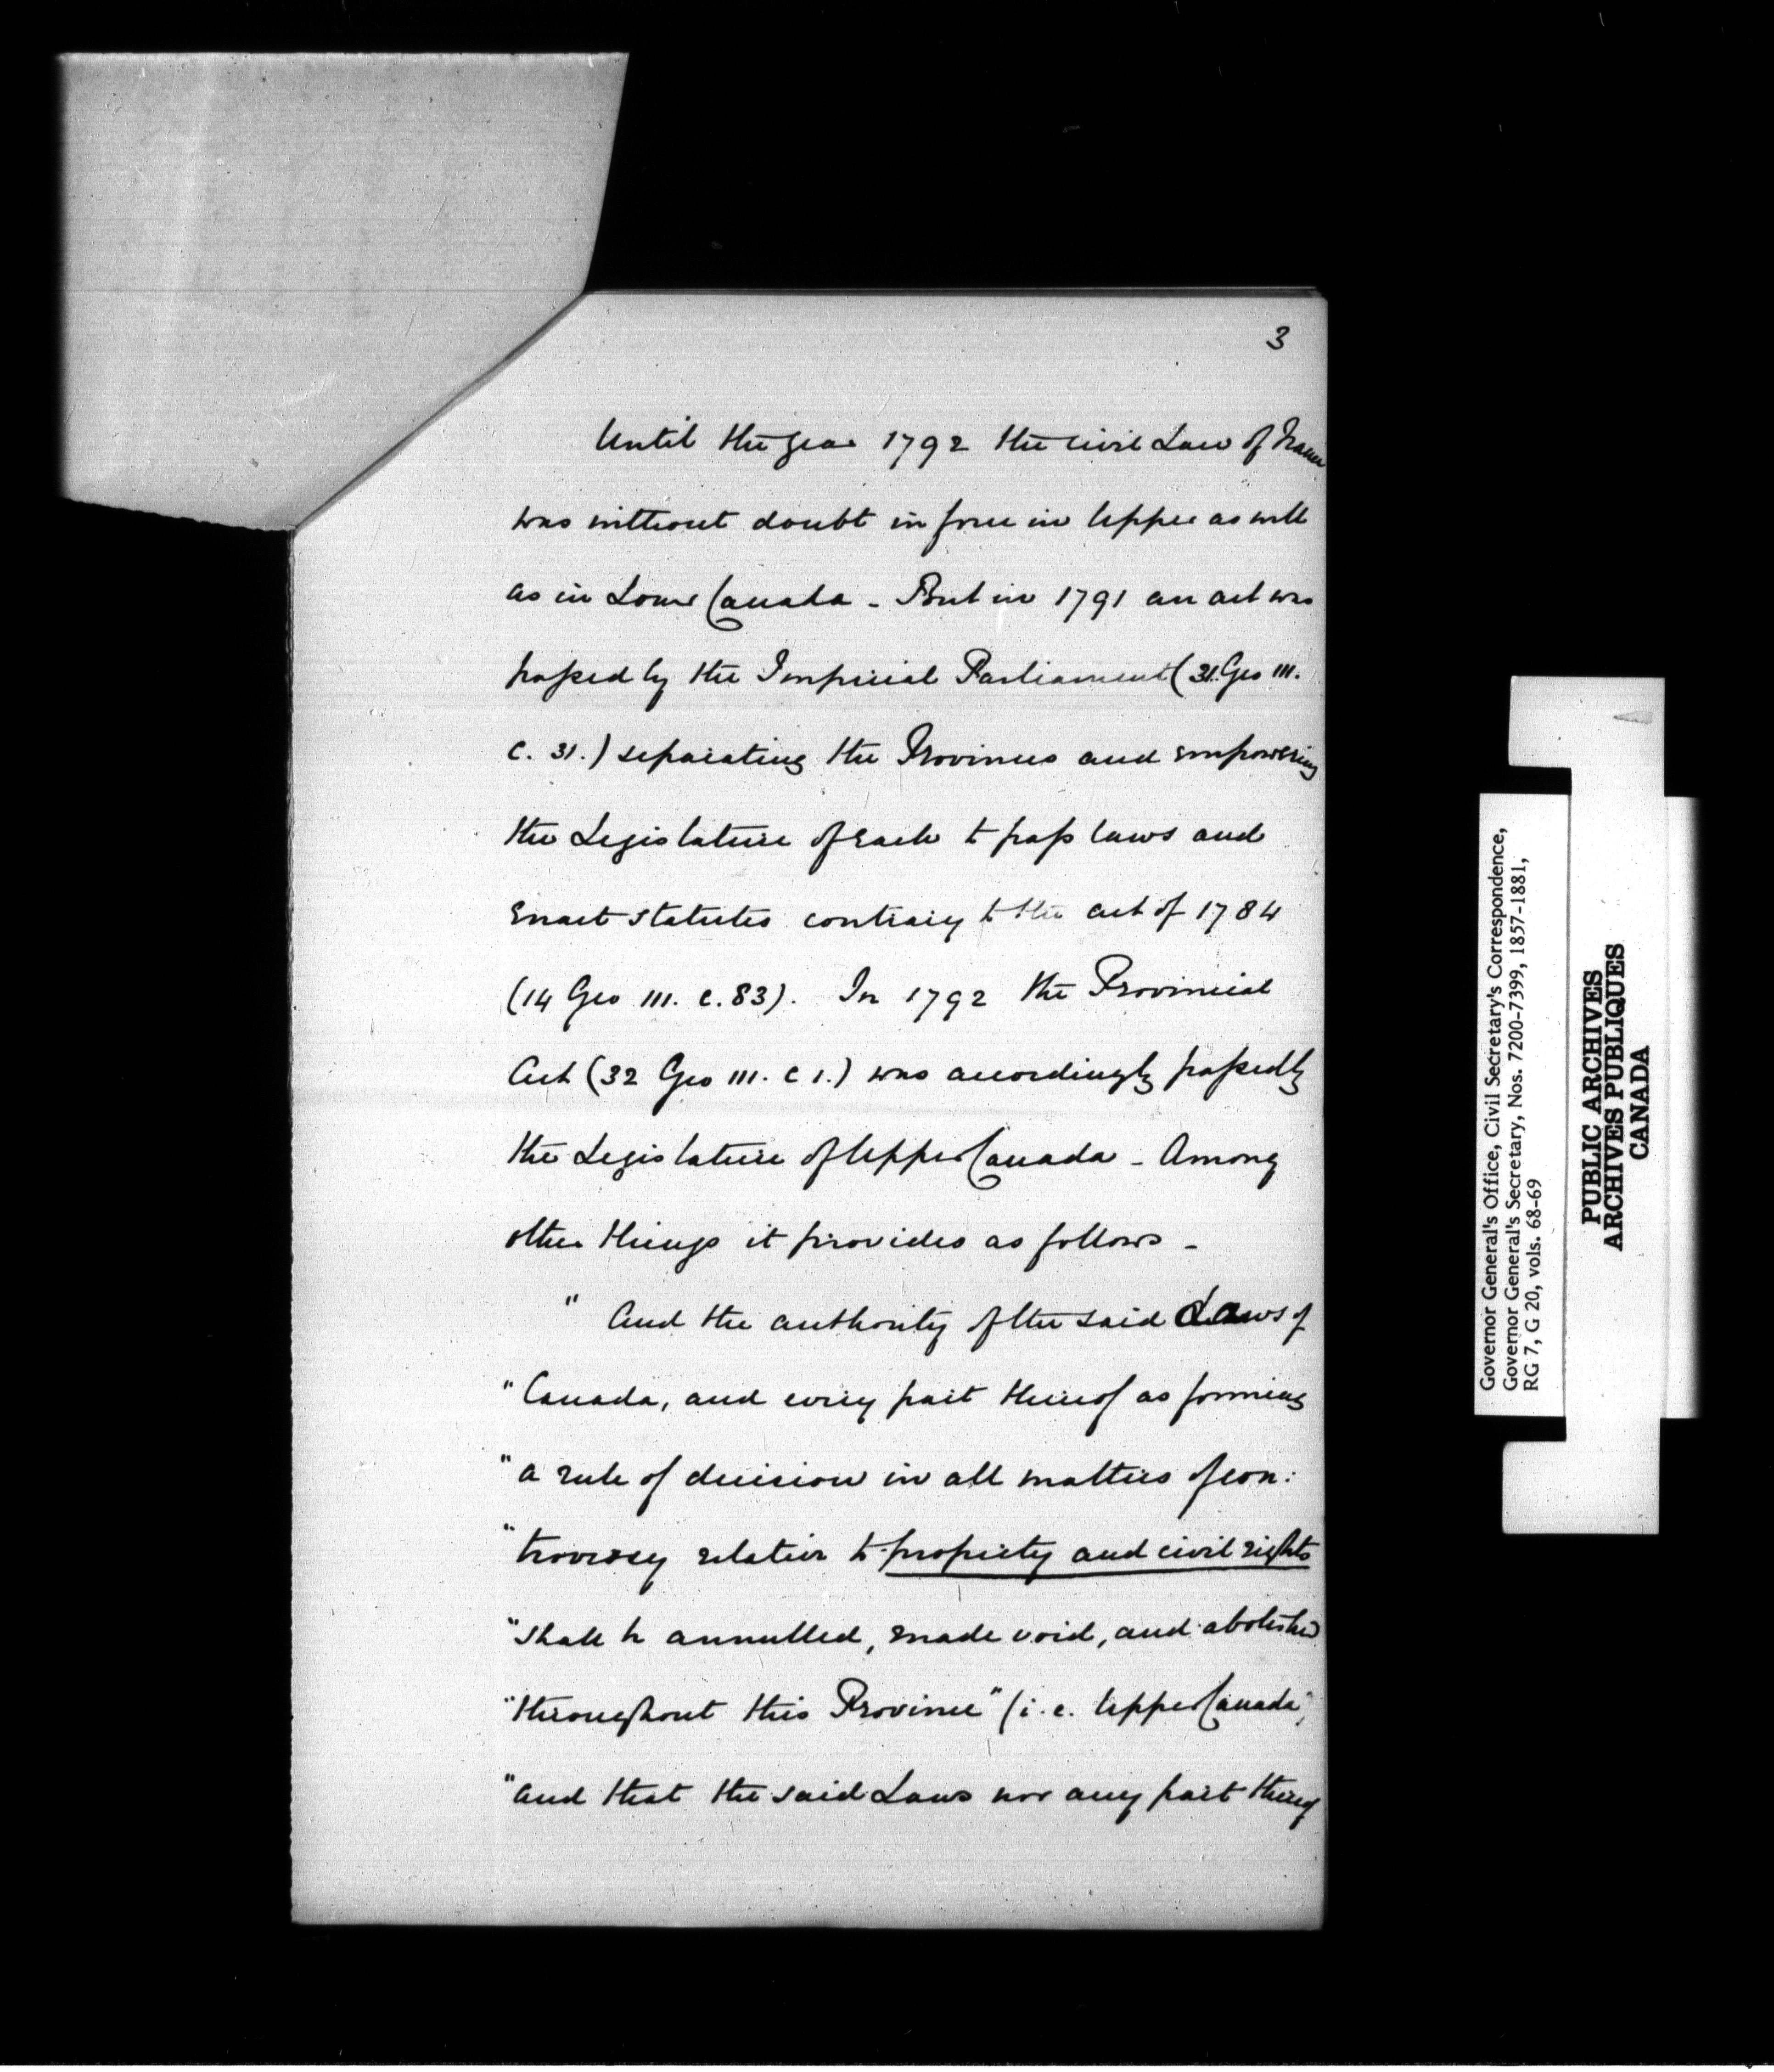 3
Until the year 1792 the civil Law of France
was without doubt in force in Upper as well
as in Lower Canada - But in 1791 an act was
passed by the Imperial Parliament (31. Geo III.
c. 31.) separating the Provinces and empowering
the Legislature of each to pass laws and
enact statutes contrary to the act of 1784
(14 Geo III. c. 83). In 1792 the Provincial
Act (32 Geo III. c 1.) was accordingly passed by
the Legislature of Upper Canada - Among
other things it provides as follows -
" And the authority of the said Laws of
" Canada, and every part thereof as forming
" a rule of decision in all matters of con:
" troversy relative to property and civil rights
" shall be annulled, made void, and abolished
" throughout this Province" (i.e. Upper Canada)
" and that the said Laws nor any part thereof
Governor General's Office, Civil Secretary's Correspondence,
Governor General's Secretary, Nos. 7200-7399, 1857-1881,
RG 7, G 20, vols. 68-69
PUBLIC ARCHIVES
ARCHIVES PUBLIQUES
CANADA